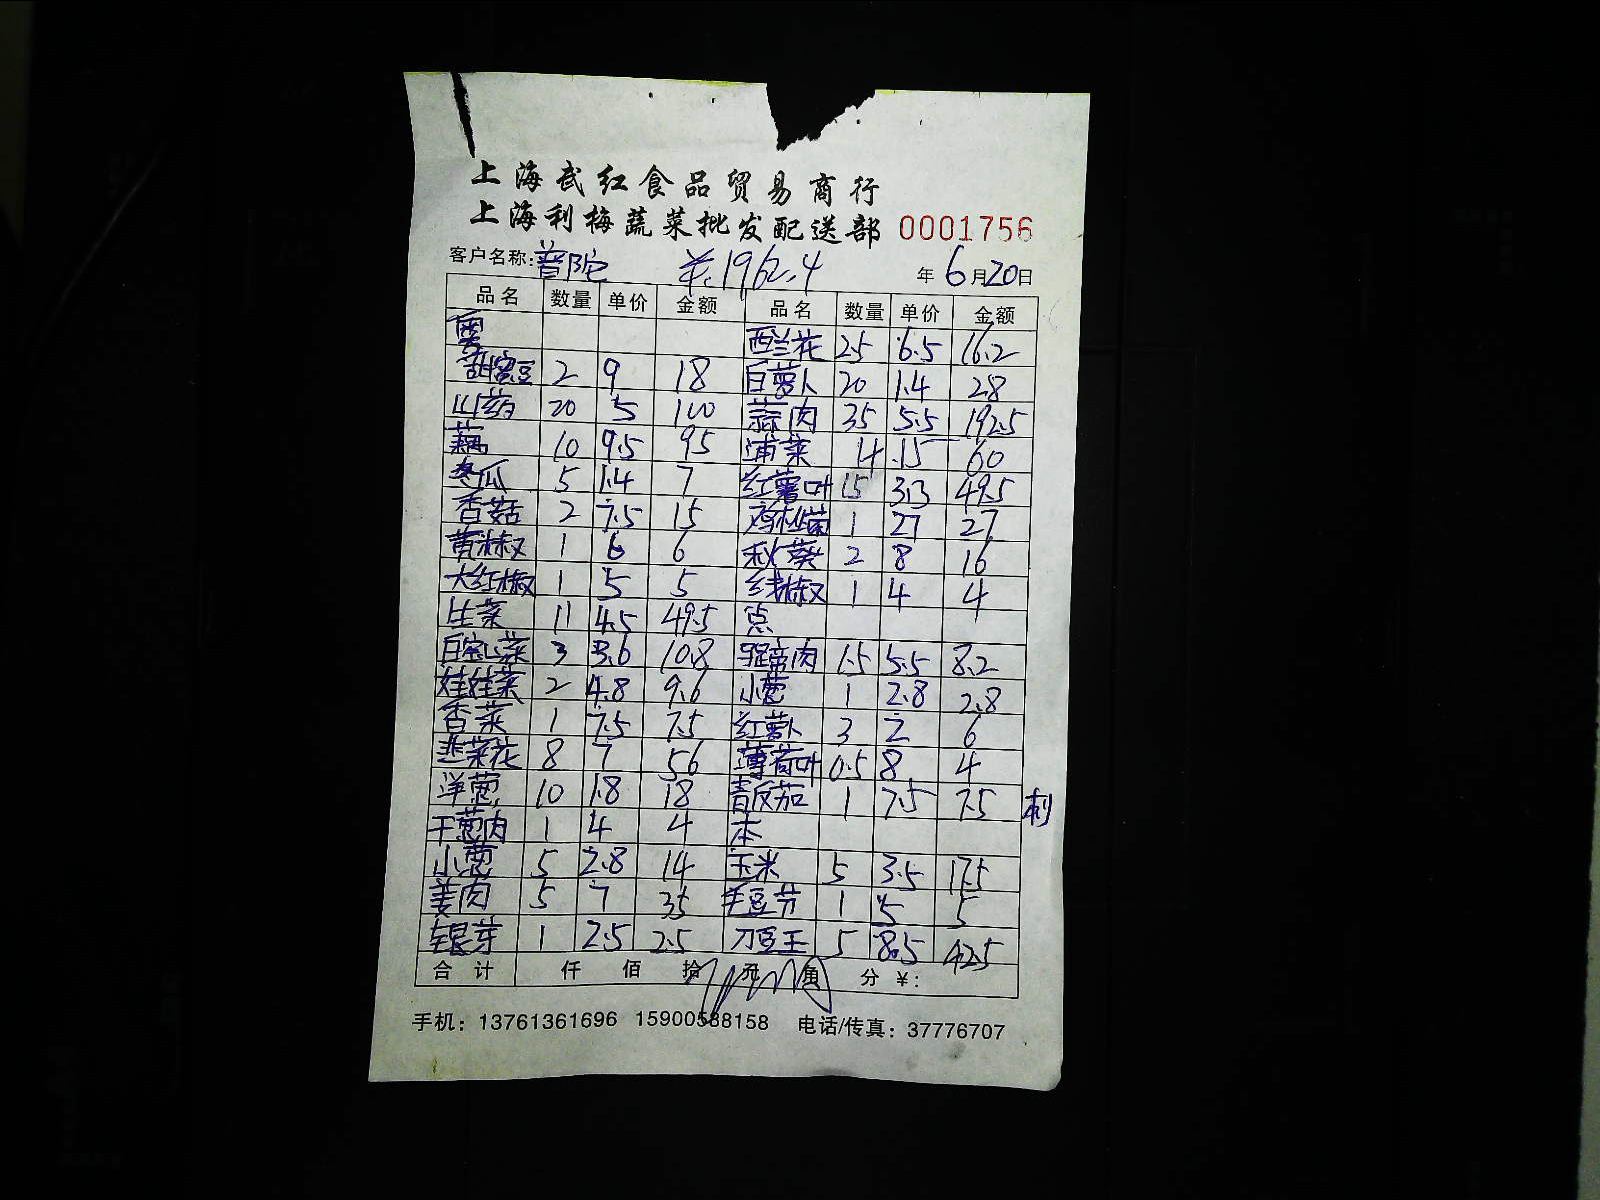 上海武红食品贸易商行
上海利梅蔬菜批发配送部 0001756
客户名称: 普陀 羊.1962.4 年 6 月 20 日
品名 数量 单价 金额 品名 数量 单价 金额
西兰花 25 6.5 16.2
甜密豆 2 9 18 白萝卜 20 1.4 28
山药 20 5 100 蒜肉 35 5.5 192.5
藕 10 9.5 95 浦菜 14 .15 60
冬瓜 5 1.4 7 红薯叶 15 3.3 49.5
香菇 2 7.5 15 鸡枞菌 1 27 27
黄椒 1 6 6 秋葵 2 8 16
大红椒 1 5 5 线椒 1 4 4
生菜 11 4.5 49.5 点
白宝山菜 3 3.6 10.8 蹄肉 1.5 5.5 8.2
娃娃菜 2 4.8 9.6 小葱 1 2.8 2.8
香菜 1 7.5 7.5 红萝卜 3 2 6
韭菜花 8 7 56 薄荷叶 0.5 8 4
洋葱 10 1.8 18 青茄 1 7.5 7.5 刺
干葱肉 1 4 4 本
小葱 5 2.8 14 玉米 5 3.5 17.5
姜肉 5 7 35 毛豆节 1 5 5
银芽 1 2.5 2.5 刀豆王 5 8.5 42.5
合计 仟 佰 拾 元 角 分 ¥:
手机：13761361696 15900588158 电话/传真：37776707